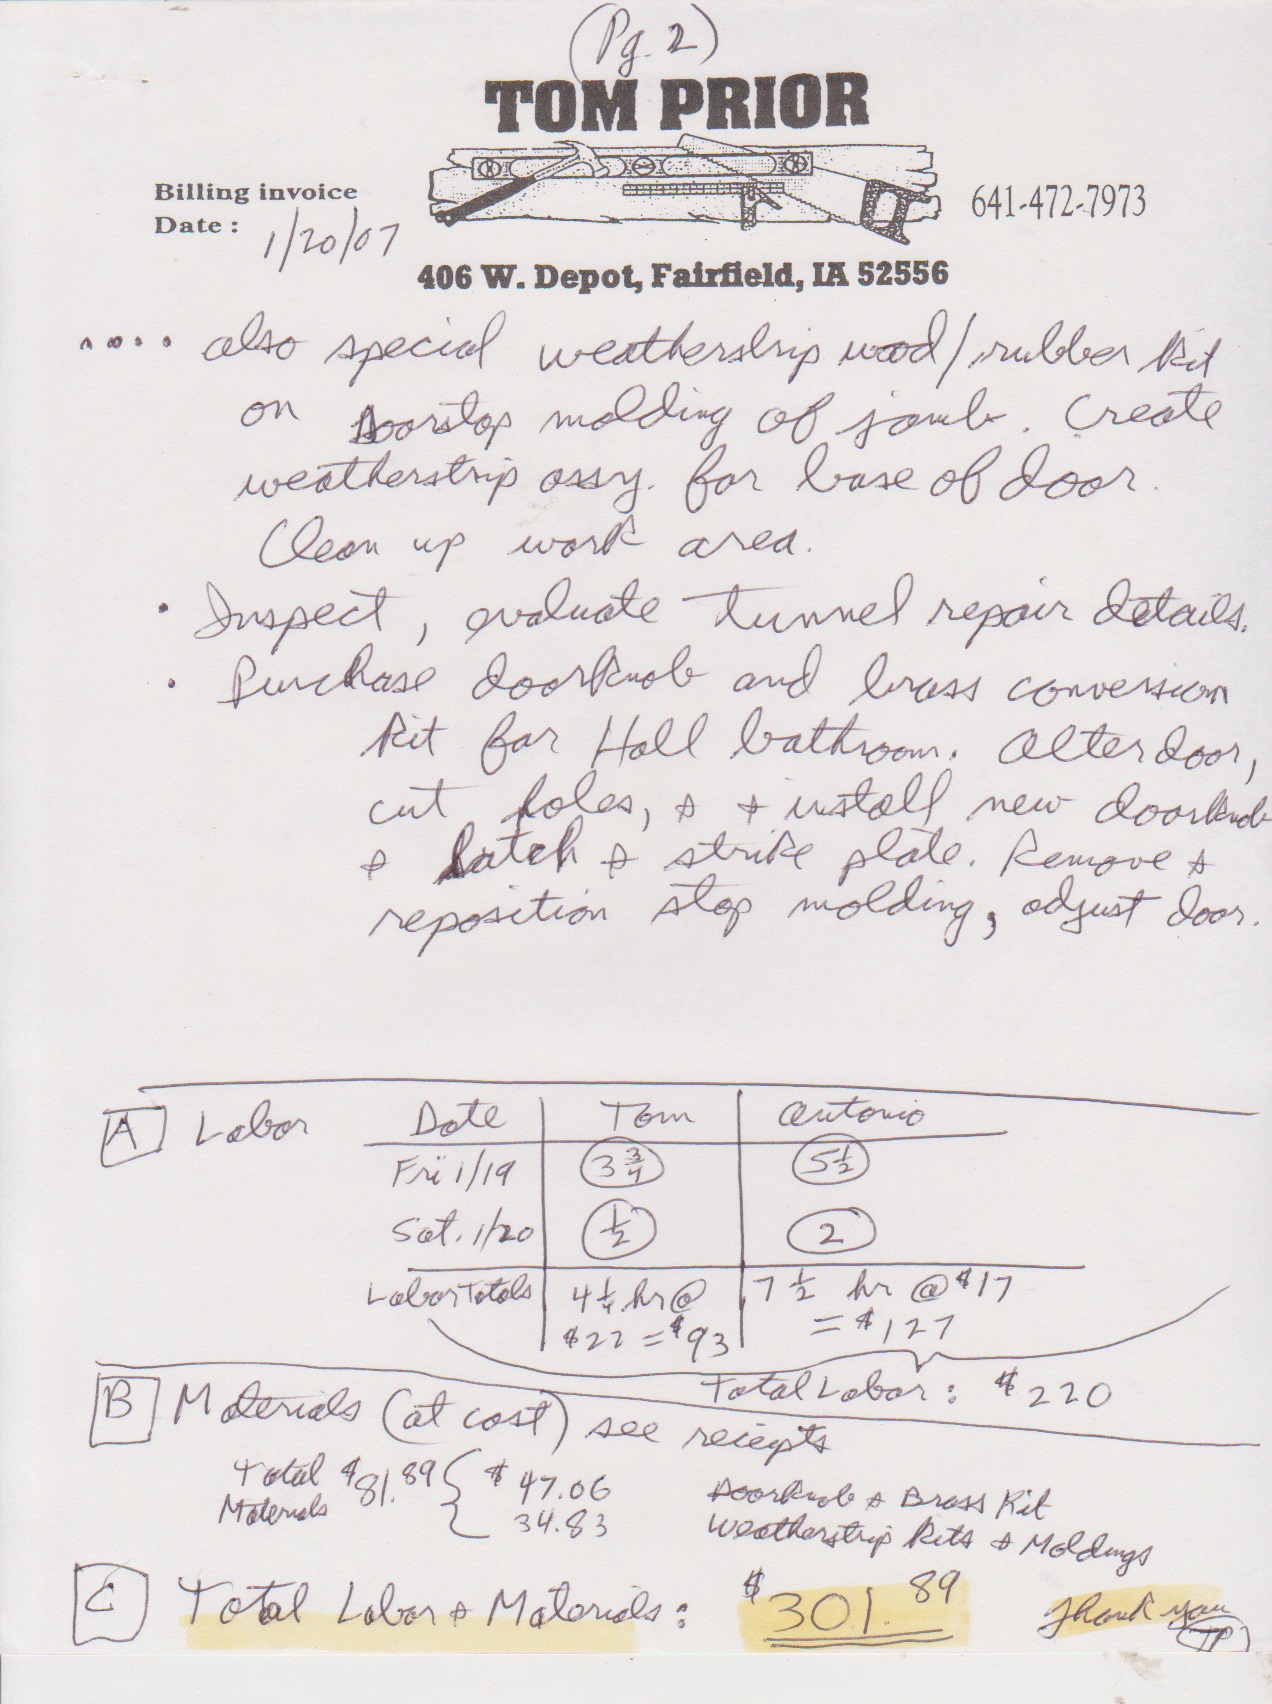 (Pg. 2)
TOM PRIOR
Billing invoice
Date: 1/20/07
641-472-7973
406 W. Depot, Fairfield, IA 52556
.... also special weatherstrip wood/rubber kit
on Doorstop molding of jamb. Create
weatherstrip assy. for base of door.
Clean up work area.
• Inspect, evaluate tunnel repair details.
• Purchase doorknob and brass conversion
kit for Hall bathroom. Alter door,
cut holes, + + install new doorknob
+ Latch + strike plate. Remove +
reposition stop molding, adjust door.
A Labor Date Tom Antonio
Fri 1/19 3 3/4 5 1/2
Sat. 1/20 1/2 2
Labor Totals 4 1/4 hr @ 7 1/2 hr @ $17
$22 = $93 = $127
Total Labor: $220
B Materials (at cost) see receipts
Total $81.89 { $47.06 Doorknob + Brass Kit
Materials 34.83 Weatherstrip Kits + Moldings
C Total Labor + Materials: $301.89 Thank you
TP